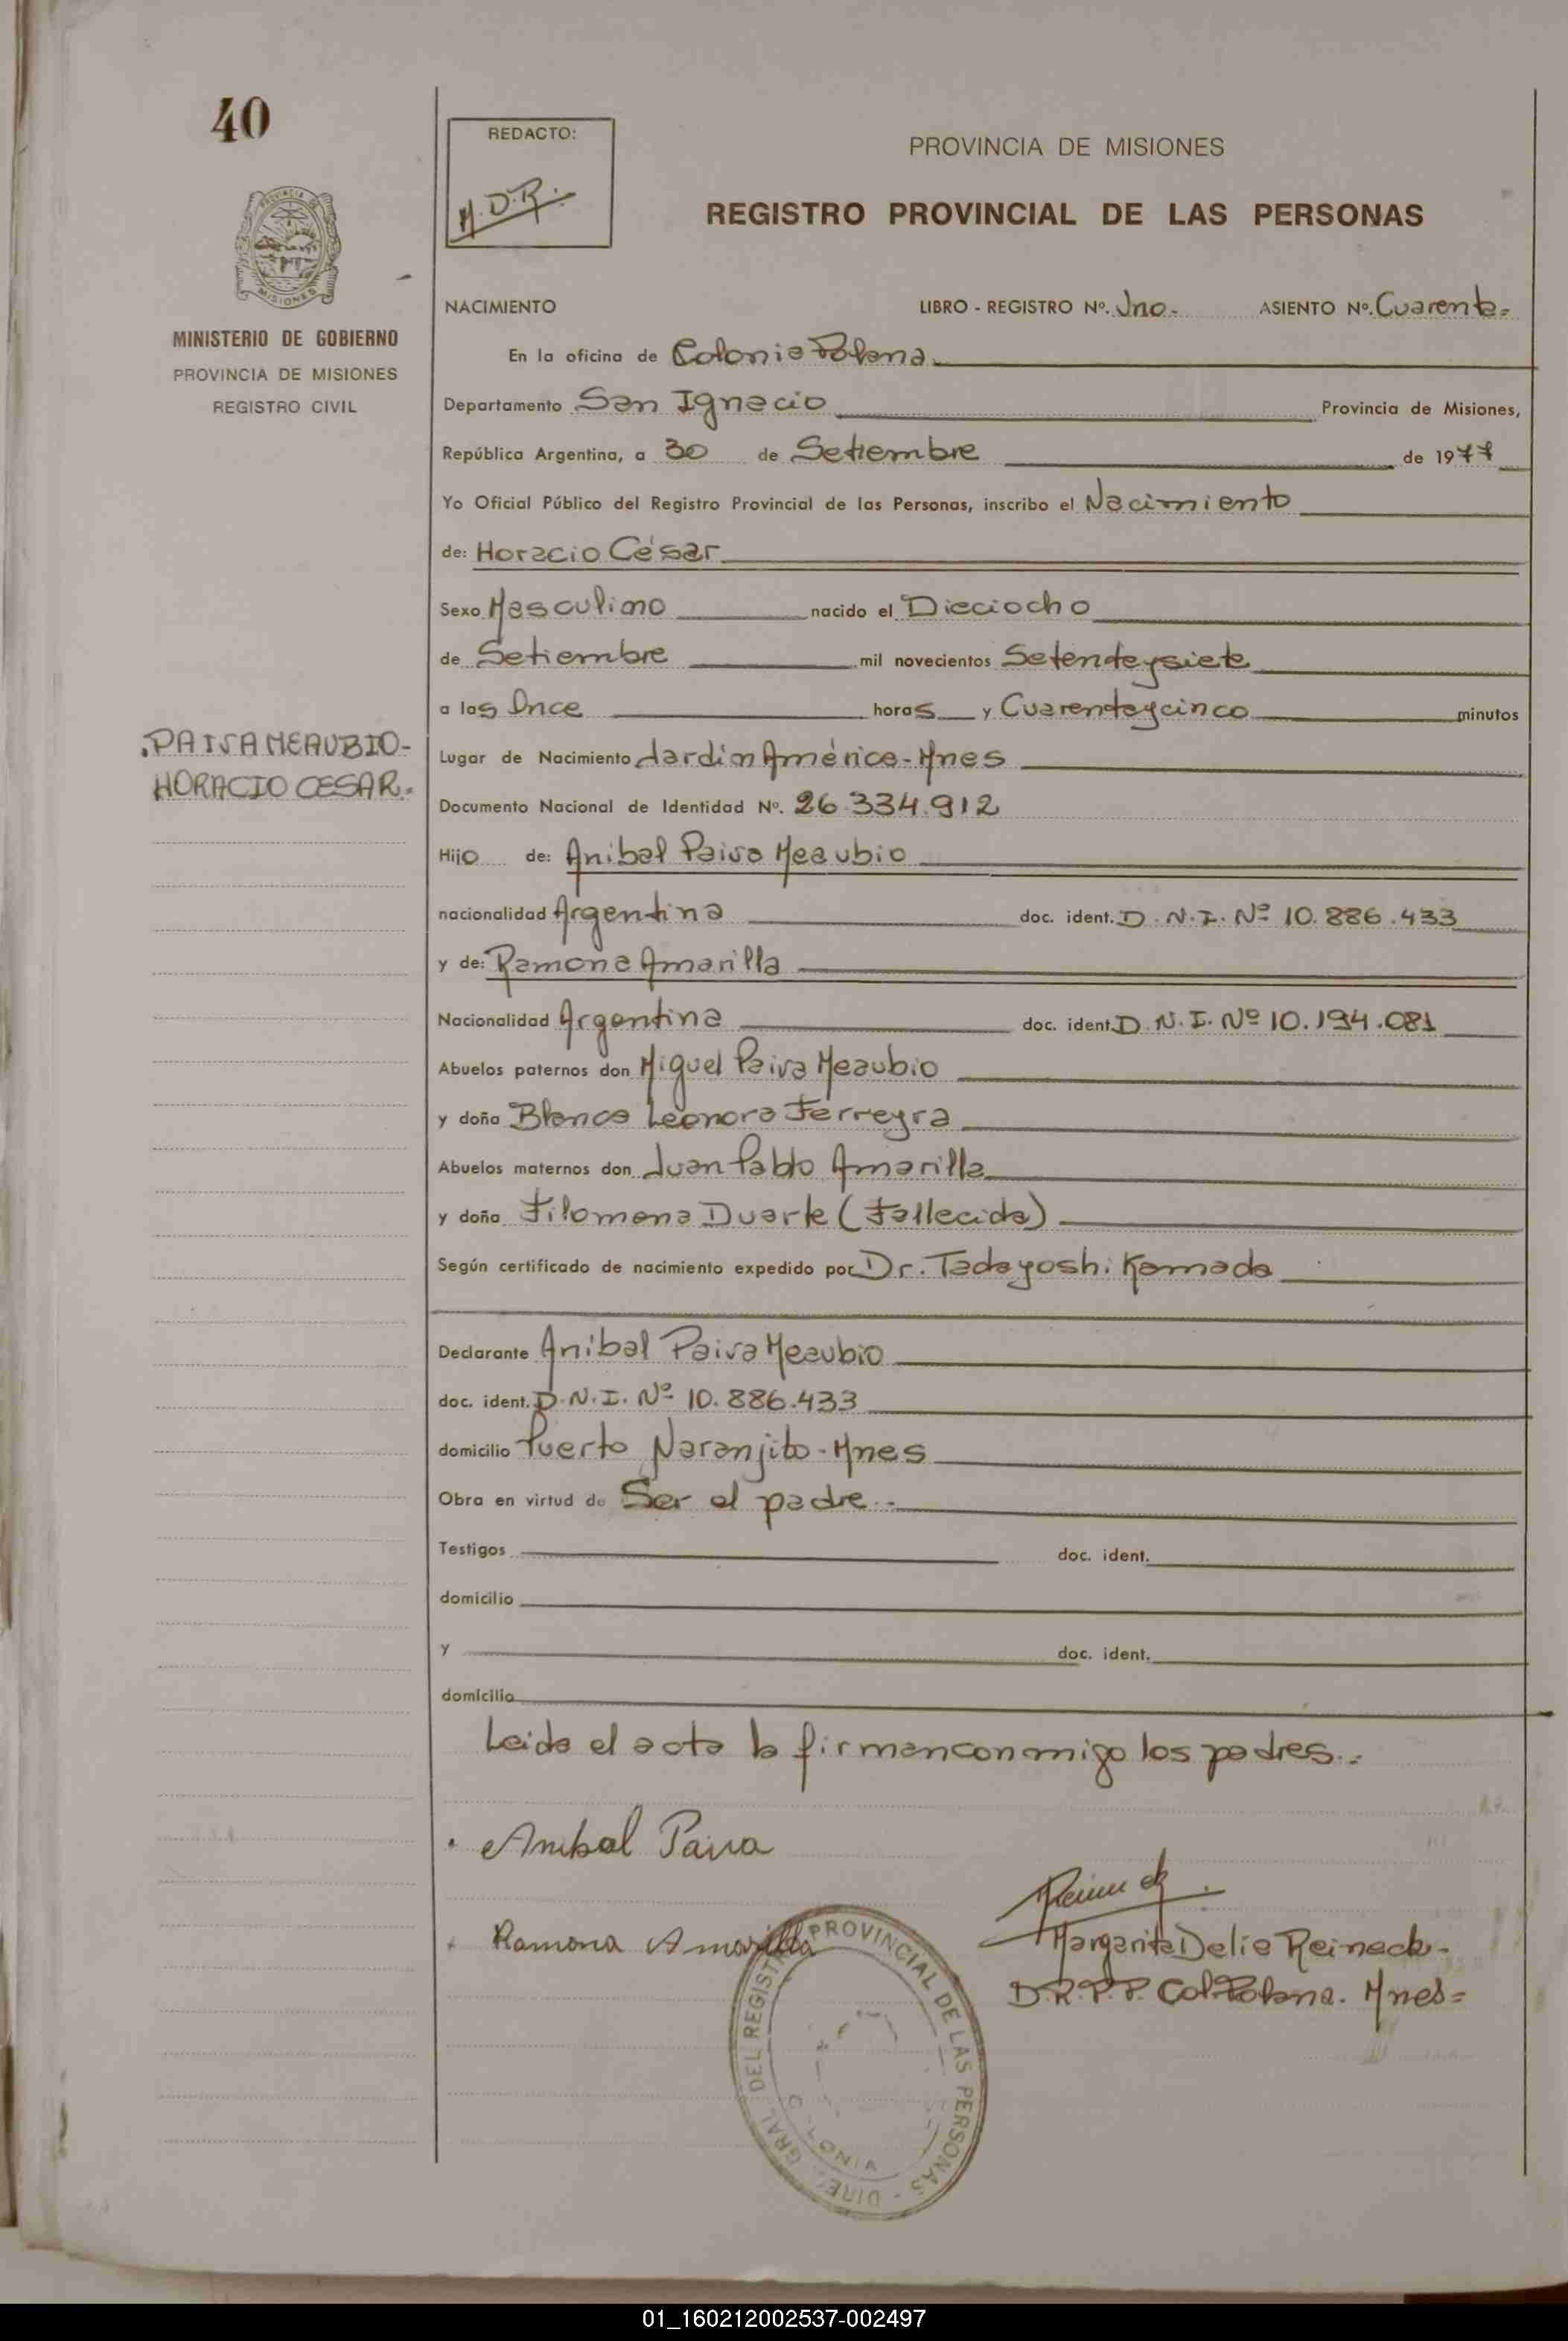 40
REDACTO:
M.D.R.
PROVINCIA DE MISIONES
REGISTRO PROVINCIAL DE LAS PERSONAS
MISIONES
MINISTERIO DE GOBIERNO
PROVINCIA DE MISIONES
REGISTRO CIVIL
PAIVA MEAUBIO-
HORACIO CESAR.=
NACIMIENTO LIBRO - REGISTRO Nº. Uno.- ASIENTO Nº. Cuarenta=
En la oficina de Colonia Polana.
Departamento San Ignacio Provincia de Misiones,
República Argentina, a 30 de Setiembre de 1977
Yo Oficial Público del Registro Provincial de las Personas, inscribo el Nacimiento
de: Horacio César
Sexo Masculino nacido el Dieciocho
de Setiembre mil novecientos Setentaysiete
a las Once horas y Cuarentaycinco minutos
Lugar de Nacimiento Jardín América-Mnes
Documento Nacional de Identidad Nº. 26.334.912
Hijo de: Anibal Paiva Meaubio
nacionalidad Argentina doc. ident. D.N.I. Nº 10.886.433
y de: Ramona Amarilla
Nacionalidad Argentina doc. ident. D.N.I. Nº 10.194.081
Abuelos paternos don Miguel Paiva Meaubio
y doña Blanca Leonora Ferreyra
Abuelos maternos don Juan Pablo Amarilla
y doña Filomena Duarte (Fallecida)
Según certificado de nacimiento expedido por Dr. Tadayoshi Kamada
Declarante Anibal Paiva Meaubio
doc. ident. D.N.I. Nº 10.886.433
domicilio Puerto Naranjito-Mnes
Obra en virtud de Ser el padre.-
Testigos doc. ident.
domicilio
y doc. ident.
domicilio
Leida el acta la firman conmigo los padres.=
Anibal Paiva
Ramona Amarilla
Margarita Delia Reineck-
D.R.P.P. Col. Polana. Mnes=
DIREC. GRAL. DEL REGISTRO PROVINCIAL DE LAS PERSONAS -
COLONIA
01_160212002537-002497